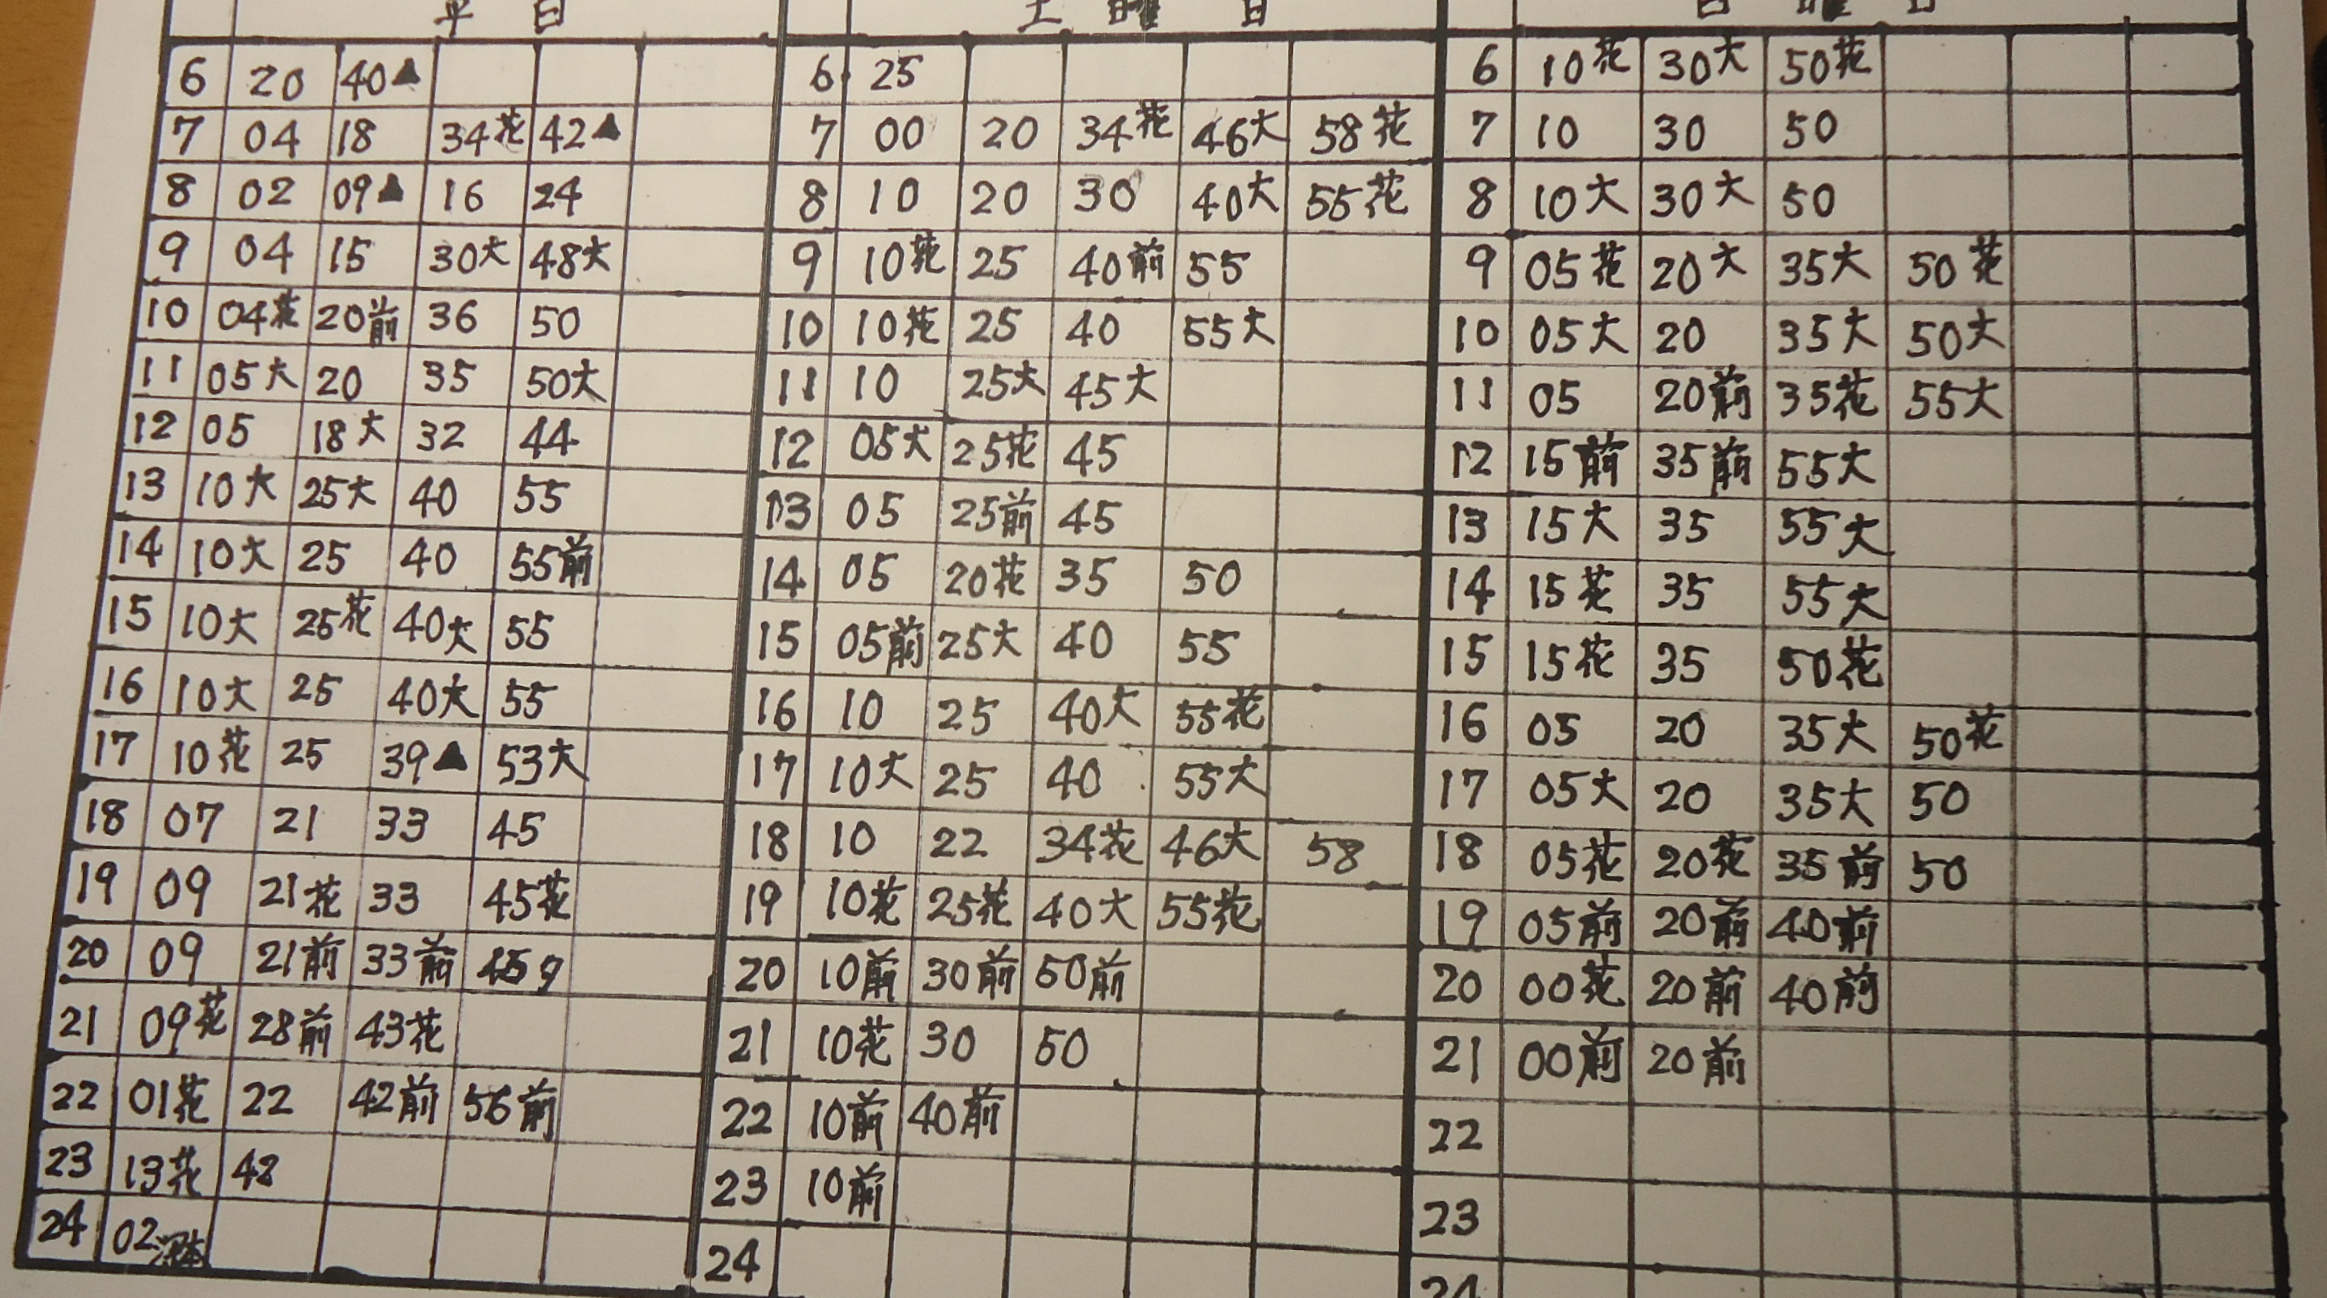 平日 土曜日 日曜日
6 20 40▲ 6 25 6 10花 30大 50花
7 04 18 34花 42▲ 7 00 20 34花 46大 58花 7 10 30 50
8 02 09▲ 16 24 8 10 20 30 40大 55花 8 10大 30大 50
9 04 15 30大 48大 9 10花 25 40前 55 9 05花 20大 35大 50花
10 04花 20前 36 50 10 10花 25 40 55大 10 05大 20 35大 50大
11 05大 20 35 50大 11 10 25大 45大 11 05 20前 35花 55大
12 05 18大 32 44 12 05大 25花 45 12 15前 35前 55大
13 10大 25大 40 55 13 05 25前 45 13 15大 35 55大
14 10大 25 40 55前 14 05 20花 35 50 14 15花 35 55大
15 10大 25花 40大 55 15 05前 25大 40 55 15 15花 35 50花
16 10大 25 40大 55 16 10 25 40大 55花 16 05 20 35大 50花
17 10花 25 39▲ 53大 17 10大 25 40 55大 17 05大 20 35大 50
18 07 21 33 45 18 10 22 34花 46大 58 18 05花 20花 35前 50
19 09 21花 33 45花 19 10花 25花 40大 55花 19 05前 20前 40前
20 09 21前 33前 45 20 10前 30前 50前 20 00花 20前 40前
21 09花 28前 43花 21 10花 30 50 21 00前 20前
22 01花 22 42前 56前 22 10前 40前 22
23 13花 42 23 10前 23
24 02 24 24